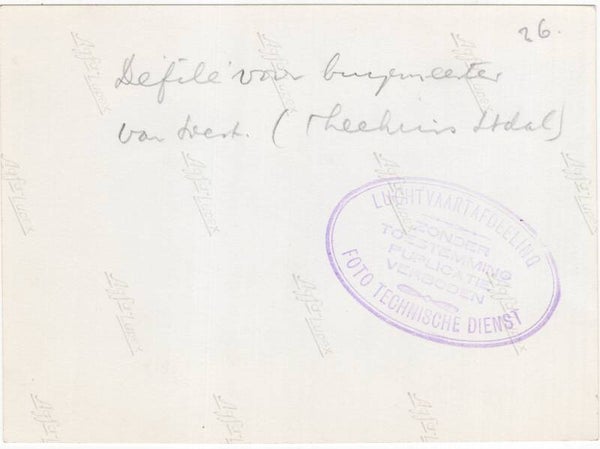 26.
Defilé voor burgemeester
van Soest. ( Theehuis Stdal)
LUCHTVAARTAFDEELING
ZONDER
TOESTEMMING
PUPLICATIE
VERBODEN
FOTO TECHNISCHE DIENST